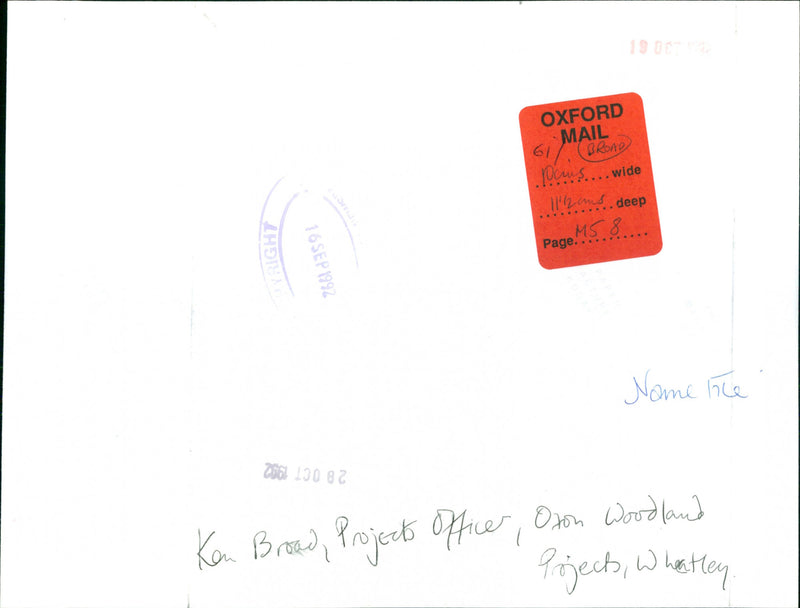 19 OCT 1992
OXFORD
MAIL
61% BROAD
10cms....wide
11½cms..deep
Page M5 8
YRIGHT
16 SEP 1992
Name File
28 OCT 1992
Ken Broad, Projects Officer, Oxon Woodland
Projects, Wheatley.